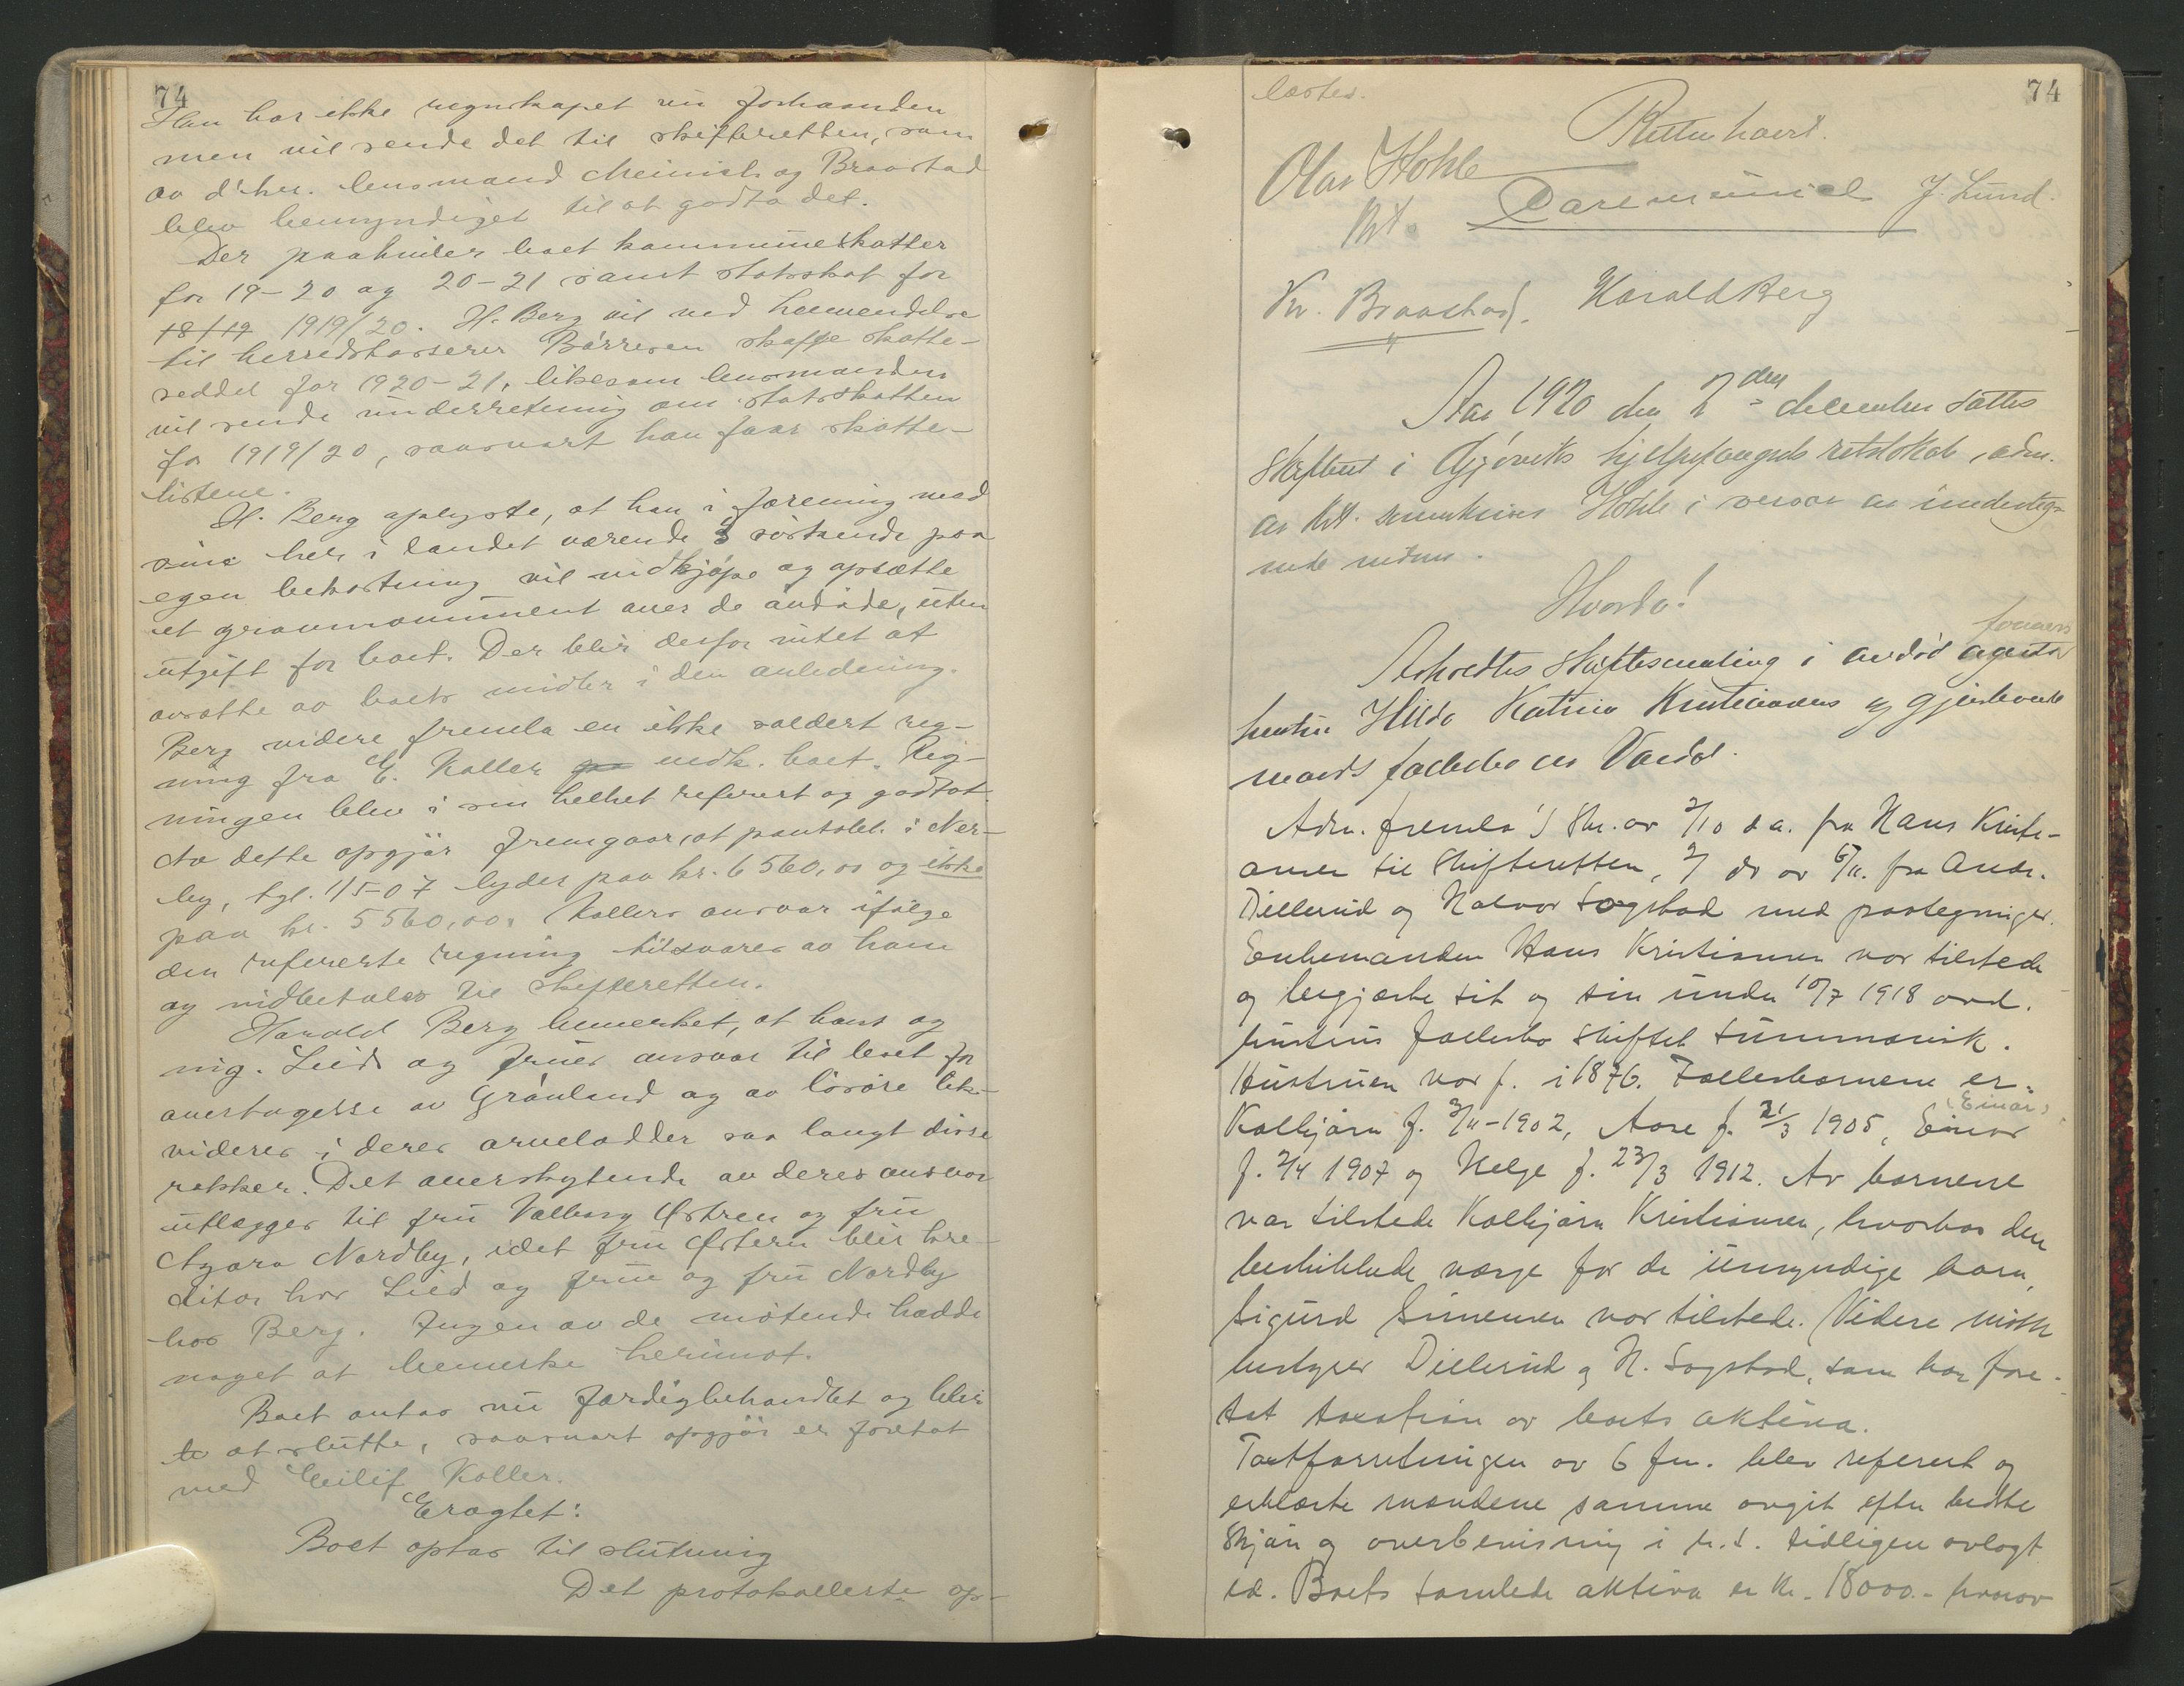 74
Han har ikke regnskapet nu forhaanden
men vil sende det til skifteretten, som
av d'hrr. lensmand Meinich og Braastad
blev bemyndiget til at godta det.
Der paahviler boet kommuneskatter
for 19-20 og 20-21 samt statsskat for
18/19 1919/20. H. Berg vil ved henvendelse
til herredskasserer Børresen skaffe skatte-
seddel for 1920-21, likesom lensmanden
vil sende underretning om statsskatten
for 1919/20, saasnart han faar skatte-
listene.
H. Berg oplyste, at han i forening med
sine her i landet værende 3 søskende paa
egen bekostning vil indkjøpe og opsætte
et gravmonument over de avdøde, uten
utgift for boet. Der blir derfor intet at
avsætte av boets midler i den anledning.
Berg videre fremla en ikke saldert reg-
ning fra E. Koller paa vedk. boet. Reg-
ningen blev i sin helhet referert og godtat.
Av dette opgjør fremgaar, at pantobl. i Ner-
by, tgl. 1/5-07 lyder paa kr. 6560,00 og ikke
paa kr. 5560,00. Kollers ansvar ifølge
den refererte regning tilsvares av ham
og indbetales til skifteretten.
Harald Berg bemerket, at hans og
ing. Lied og frues ansvar til boet for
overtagelse av Grønland og av løsøre lik-
videres i deres arvelodder saa langt disse
rækker. Det overskytende av deres ansvar
utlægges til fru Valborg Østren og fru
Agara Nordby, idet fru Østern blir kre-
ditor hos Lied og frue og fru Nordby
hos Berg. Ingen av de møtende hadde
noget at bemerke herimot.
Boet antas nu færdigbehandlet og blir
da at slutte, saasnart opgjør er foretat
med Eilif Koller.
Eragtet:
Boet optas til slutning
Det protokollerte op-
74
læstes.
Retten hævet.
Olav Hohle
Kst.
J. Lund.
Kr. Braastad. Harald Berg
Aar 1920 den 7den december sattes
skifteret i Gjøviks hjelpefængsels retslokale, adm.
av kst. Hohle i nærvær av underteg-
nede vidner.
Hvorda!
Avholdtes skiftesamling i avdød agents
hustru Hilda Katrine Kristiansens og gjenlevende
mands fællesbo av Vardal.
Adm. fremla 1) Skr. av 2/10 d.a. fra Hans Kristi-
ansen til skifteretten, 2) do av 6/11. fra Andr.
Dillerud og Halvor Sogstad med paategninger.
Enkemanden Hans Kristiansen var tilstede
og begjærte sit og sin under 10/7 1918 avd.
hustrus fællesbo skiftet summarisk.
Hustruen var f. i 1876. Fællesbarnene er:
Kolbjørn f. 3/11-1902, Aase f. 21/3 1905, Einar (Einar)
f. 2/4 1907 og Helge f. 23/3 1912. Av barnene
var tilstede Kolbjørn Kristiansen, hvorhos den
beskikkede værge for de umyndige barn,
Sigurd Simensen var tilstede. Videre møtte
bestyrer Dillerud og H. Sogstad, som har fore-
tat taxation av boets aktiva.
Taxtforretningen av 6 fm. blev referert og
erklærte mændene samme avgit efter bedste
skjøn og overbevisning i h.t. tidligere avlagt
ed. Boets samlede aktiva er kr. 18000.- hvorav